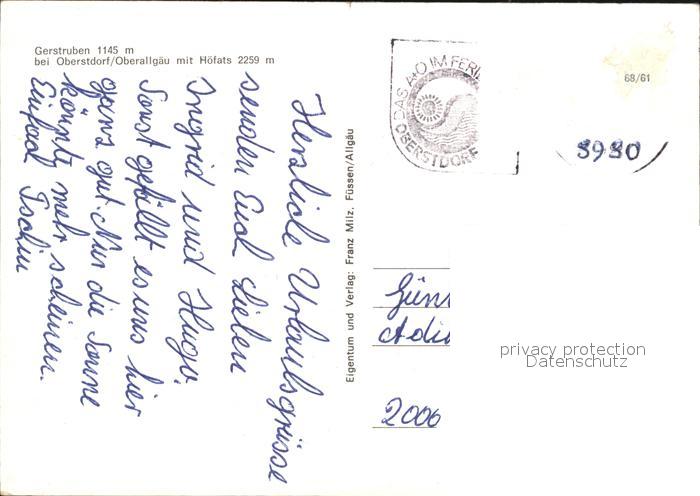 Gerstruben 1145 m
bei Oberstdorf/Oberallgäu mit Höfats 2259 m
Herzliche Urlaubsgrüsse
senden Euch Lieben
Ingrid und Hugo.
Sonst gefällt es uns hier
ganz gut. Nur die Sonne
könnte mehr scheinen.
Einfach
Eigentum und Verlag: Franz Milz, Füssen/Allgäu
DAS A+O IM FERI
OBERSTDORF
68/61
Günt
Adi
2006
privacy protection
Datenschutz